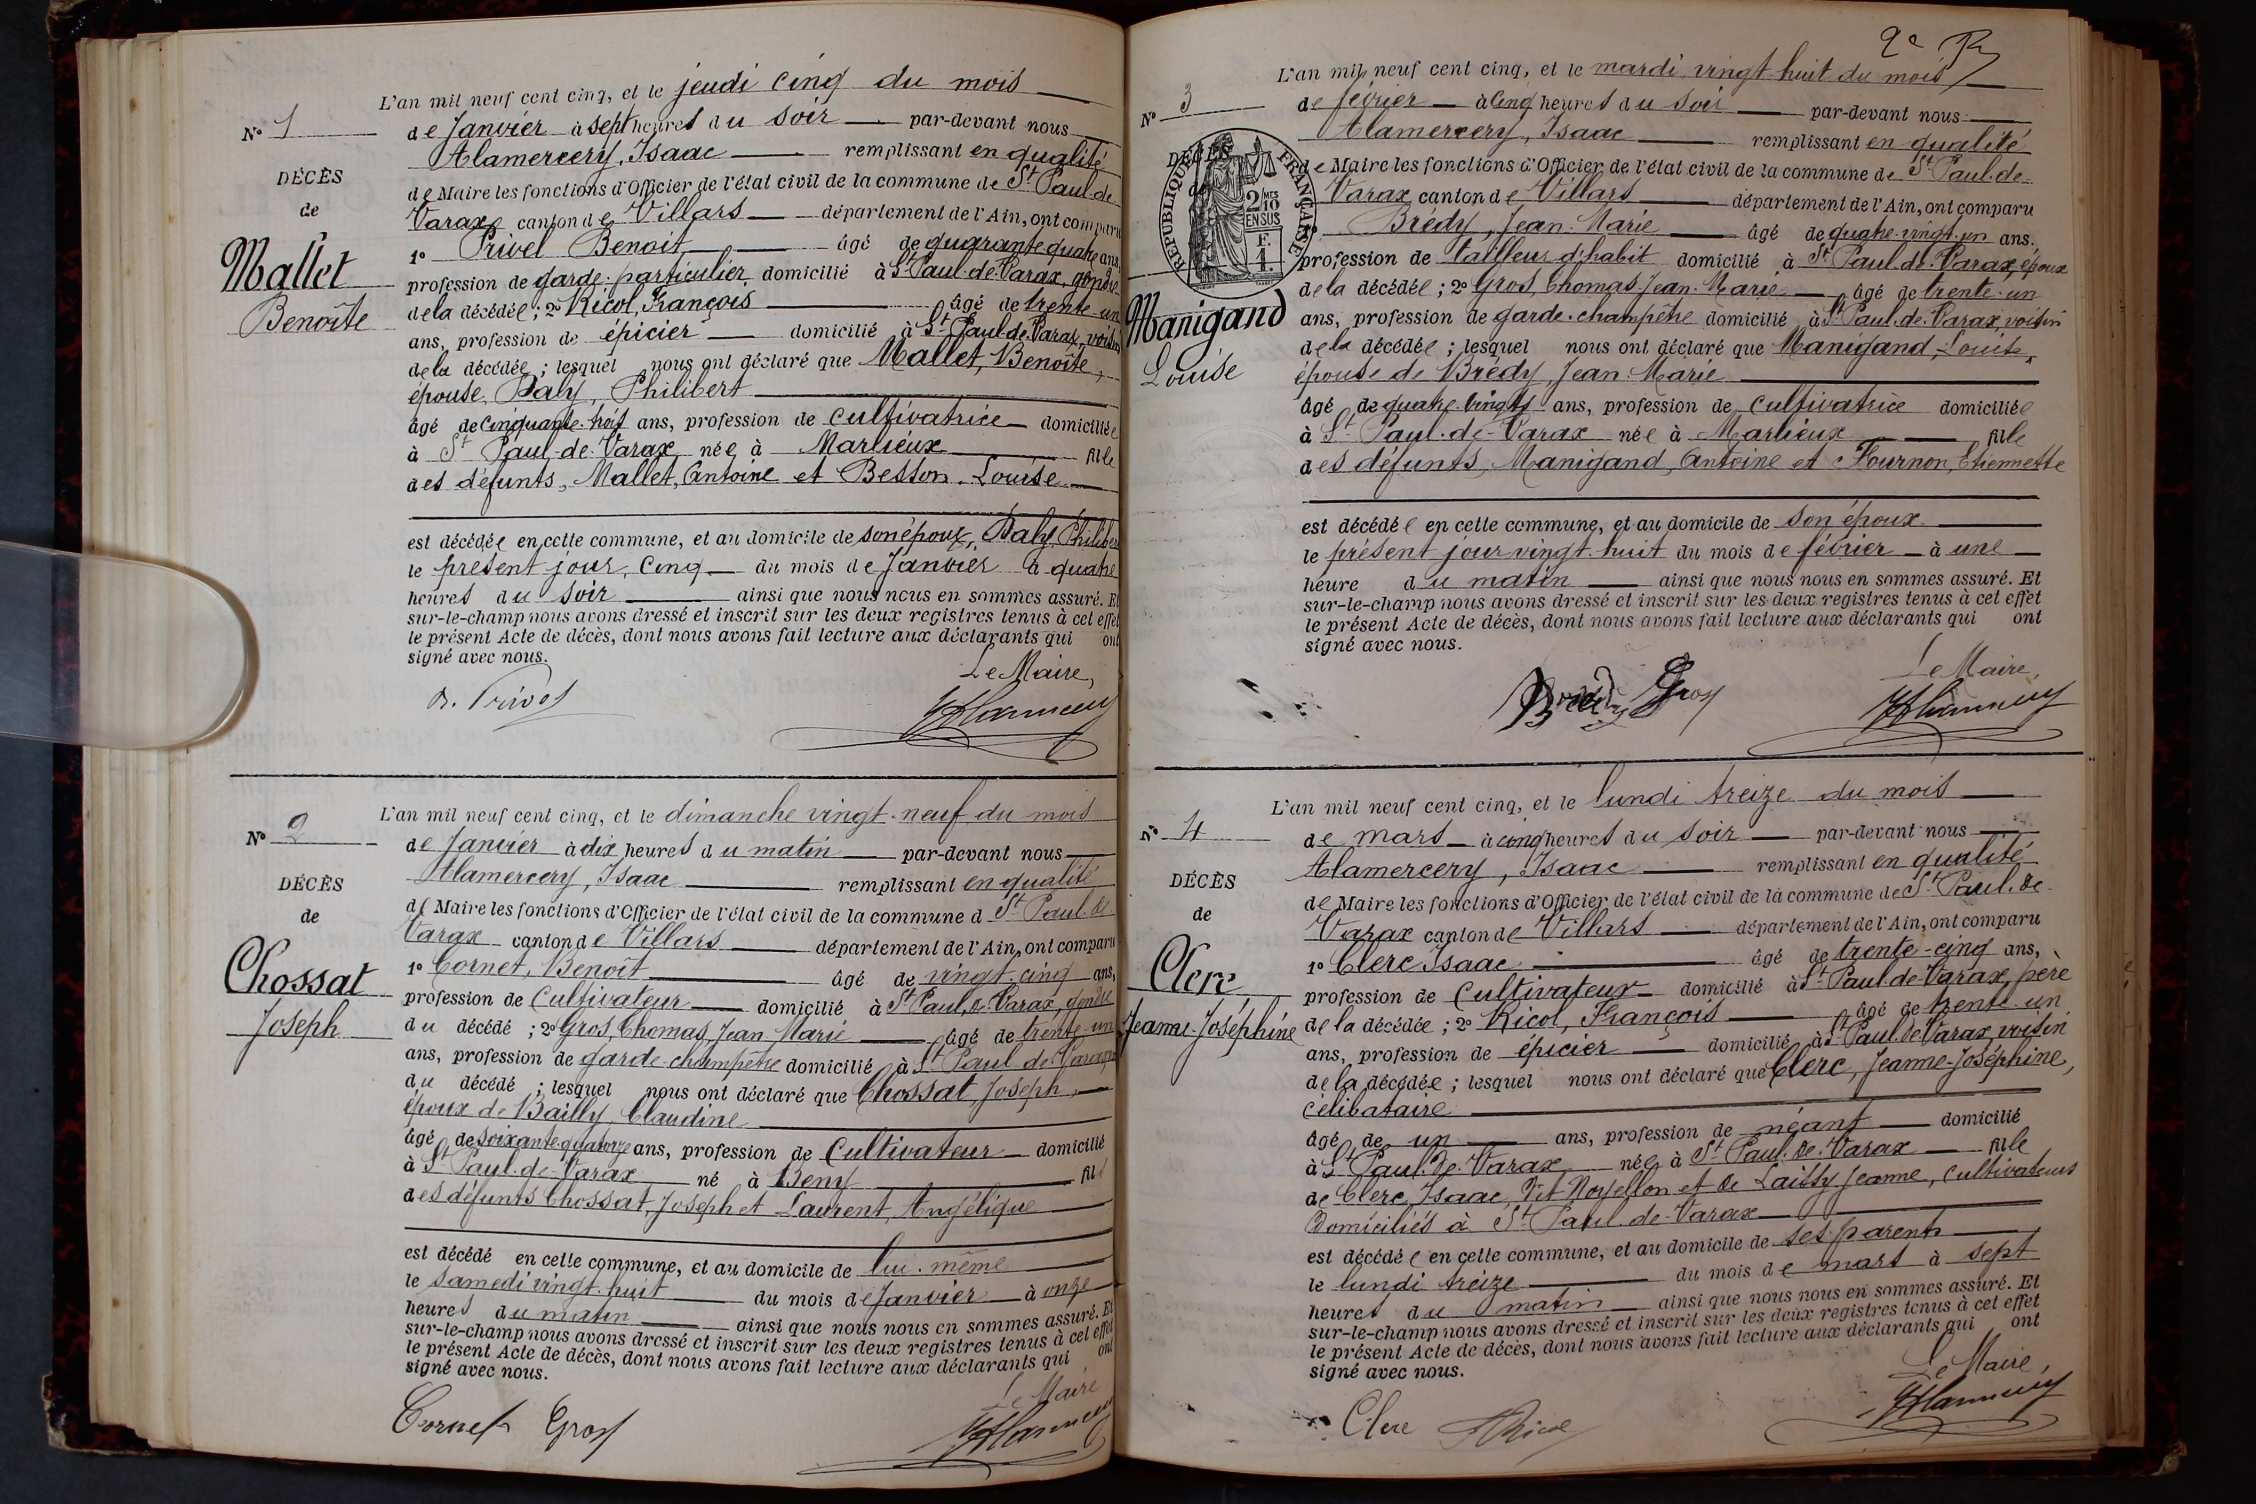 L'an mil neuf cent cinq, et le jeudi cinq du mois
N° 1
de Janvier à sept heures du soir par-devant nous
Alamercery, Isaac remplissant en qualité
DÉCÈS
de Maire les fonctions d'Officier de l'état civil de la commune de St Paul-de-
de
Varax canton de Villars département de l'Ain, ont comparu
1° Privel Benoit âgé de quarante quatre ans
Mallet
profession de garde-particulier domicilié à St Paul-de-Varax, gendre
Benoîte
de la décédée; 2° Ricol, François âgé de trente-un
ans, profession de épicier domicilié à St Paul-de-Varax, voisin
de la décédée; lesquel nous ont déclaré que Mallet, Benoîte,
épouse, Baly, Philibert
âgé de cinquante-trois ans, profession de cultivatrice domiciliée
à St Paul-de-Varax née à Marlieux fille
des défunts, Mallet, Antoine et Besson, Louise
est décédée en cette commune, et au domicile de son époux, Baly, Philibert
le présent jour, cinq du mois de Janvier à quatre
heures du soir ainsi que nous nous en sommes assuré. Et
sur-le-champ nous avons dressé et inscrit sur les deux registres tenus à cet effet
le présent Acte de décès, dont nous avons fait lecture aux déclarants qui ont
signé avec nous.
Le Maire,
B. Privel
L'an mil neuf cent cinq, et le dimanche vingt-neuf du mois
N° 2
de Janvier à dix heures du matin par-devant nous
Alamercery, Isaac remplissant en qualité
DÉCÈS
de Maire les fonctions d'Officier de l'état civil de la commune d St Paul-de
de
Varax canton de Villars département de l'Ain, ont comparu
1° Cornet, Benoît âgé de vingt-cinq ans,
Chossat
profession de Cultivateur domicilié à St Paul-de-Varax, gendre
Joseph
du décédé; 2° Gros, Thomas, Jean Marie âgé de trente-un
ans, profession de garde-champêtre domicilié à St Paul-de-Varax,
du décédé; lesquel nous ont déclaré que Chossat, Joseph,
époux de Bailly Claudine
âgé de soixante-quatorze ans, profession de cultivateur domicilié
à St Paul-de-Varax né à Beny fils
des défunts Chossat, Joseph et Laurent, Angélique
est décédé en cette commune, et au domicile de lui-même
le samedi vingt-huit du mois de Janvier à onze
heures du matin ainsi que nous nous en sommes assuré. Et
sur-le-champ nous avons dressé et inscrit sur les deux registres tenus à cet effet
le présent Acte de décès, dont nous avons fait lecture aux déclarants qui ont
signé avec nous.
Le Maire
Cornet Gros
2e
L'an mil neuf cent cinq, et le mardi vingt-huit du mois
N° 3
de février à cinq heures du soir par-devant nous
Alamercery, Isaac remplissant en qualité
DÉCÈS
de Maire les fonctions d'Officier de l'état civil de la commune de St Paul-de-
RÉPUBLIQUE FRANÇAISE
2/10 EN SUS
F. 1.
Varax canton de Villars département de l'Ain, ont comparu
Brédy, Jean-Marie âgé de quatre-vingt-un ans.
profession de tailleur d'habit domicilié à St Paul-de-Varax, époux
de la décédée; 2° Gros, Thomas Jean-Marie âgé de trente-un
Manigand
ans, profession de garde-champêtre domicilié à St Paul-de-Varax, voisin
Louise
de la décédée; lesquel nous ont déclaré que Manigand, Louise,
épouse de Brédy, Jean-Marie
âgé de quatre-vingts ans, profession de cultivatrice domiciliée
à St Paul-de-Varax née à Marlieux fille
des défunts, Manigand, Antoine et Flournon, Etiennette
est décédée en cette commune, et au domicile de son époux
le présent jour vingt-huit du mois de février à une
heure du matin ainsi que nous nous en sommes assuré. Et
sur-le-champ nous avons dressé et inscrit sur les deux registres tenus à cet effet
le présent Acte de décès, dont nous avons fait lecture aux déclarants qui ont
signé avec nous.
Le Maire
Brédy Gros
L'an mil neuf cent cinq, et le lundi treize du mois
N° 4
de mars à cinq heures du soir par-devant nous
Alamercery, Isaac remplissant en qualité
DÉCÈS
de Maire les fonctions d'Officier de l'état civil de la commune de St Paul-de-
de
Varax canton de Villars département de l'Ain, ont comparu
1° Clerc Isaac âgé de trente-cinq ans,
Clerc
profession de cultivateur domicilié à St Paul-de-Varax, père
Jeanne-Joséphine
de la décédée; 2° Ricol, François âgé de trente-un
ans, profession de épicier domicilié à St Paul-de-Varax, voisin
de la décédée; lesquel nous ont déclaré que Clerc, Jeanne-Joséphine,
célibataire
âgé de un ans, profession de néant domicilié
à St Paul-de-Varax née à St Paul-de-Varax fille
de Clerc, Isaac, dit Noyellon et de Laissy Jeanne, cultivateurs
domiciliés à St Paul-de-Varax
est décédée en cette commune, et au domicile de ses parents
le lundi treize du mois de mars à sept
heures du matin ainsi que nous nous en sommes assuré. Et
sur-le-champ nous avons dressé et inscrit sur les deux registres tenus à cet effet
le présent Acte de décès, dont nous avons fait lecture aux déclarants qui ont
signé avec nous.
Le Maire,
Clerc Ricol